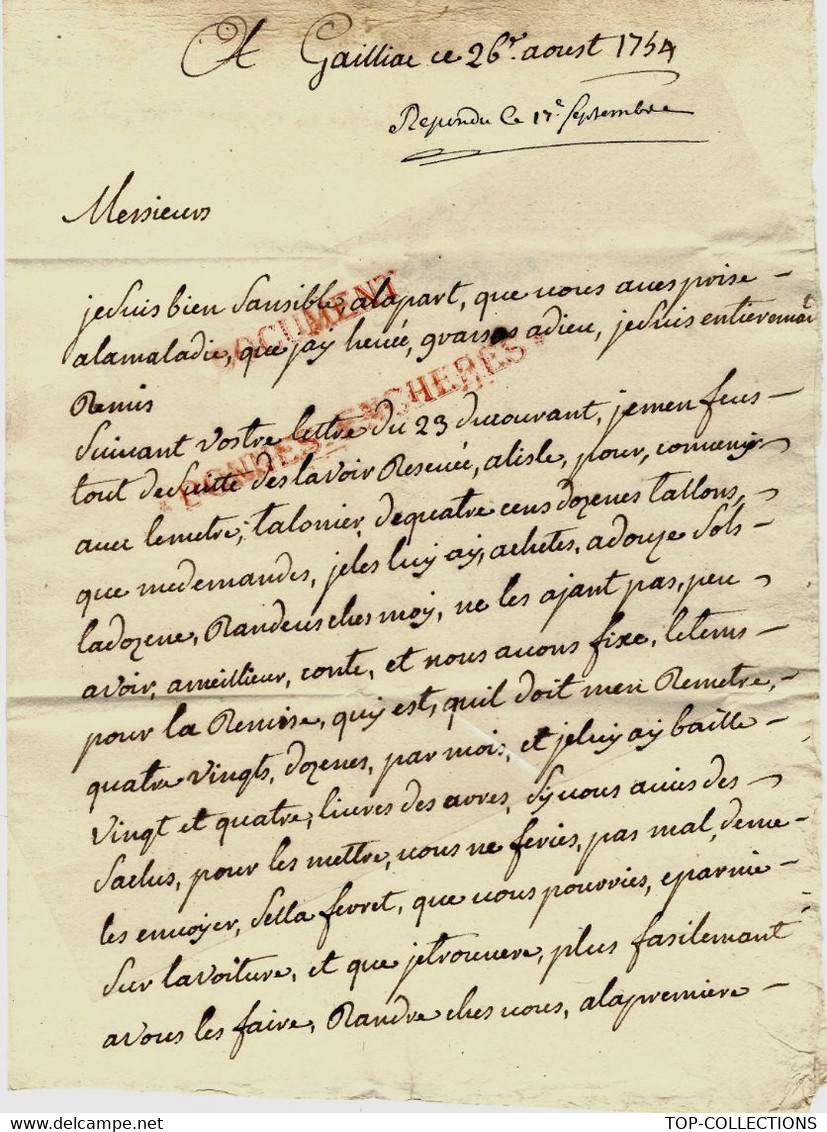 A Gailliac ce 26.r aoust 1754
Repondu le 17.e Septembre
Messieurs
je suis bien Sansible, alapart, que vous aves prise
alamaladie, que jay heuée, grasses adieu, je suis entieremant
Remis
DOCUMENT
Suivant vostre lettre du 23 ducourant, jemen feus
BONNES ENCHERES
tout desuitte deslavoir Reseuée, alisle, pour, convenir
avec lemetre, talonier, dequatre cens dozenes tallons,
que medemandes, jeles luy ay, achetes, adouze Sols
ladozene, Randeus ches moy, ne les ajant pas, peu
avoir, ameillieur, conte, et nous avons fixe, letems
pour la Remise, quy est, quil doit men Remetre,
quatre vingts, dozenes, par mois, et jeluy ay baille
vingt et quatre, livres des arres, Sy vous avies des
Sachs, pour les mettre, vous ne feries, pas mal, deme
les envoyer, Sella feroet, que vous pourries, eparnie
Sur lavoiture, et que jetrouvere, plus fasilemant
avous les faire, Randre ches vous, alapremiere
TOP-COLLECTIONS